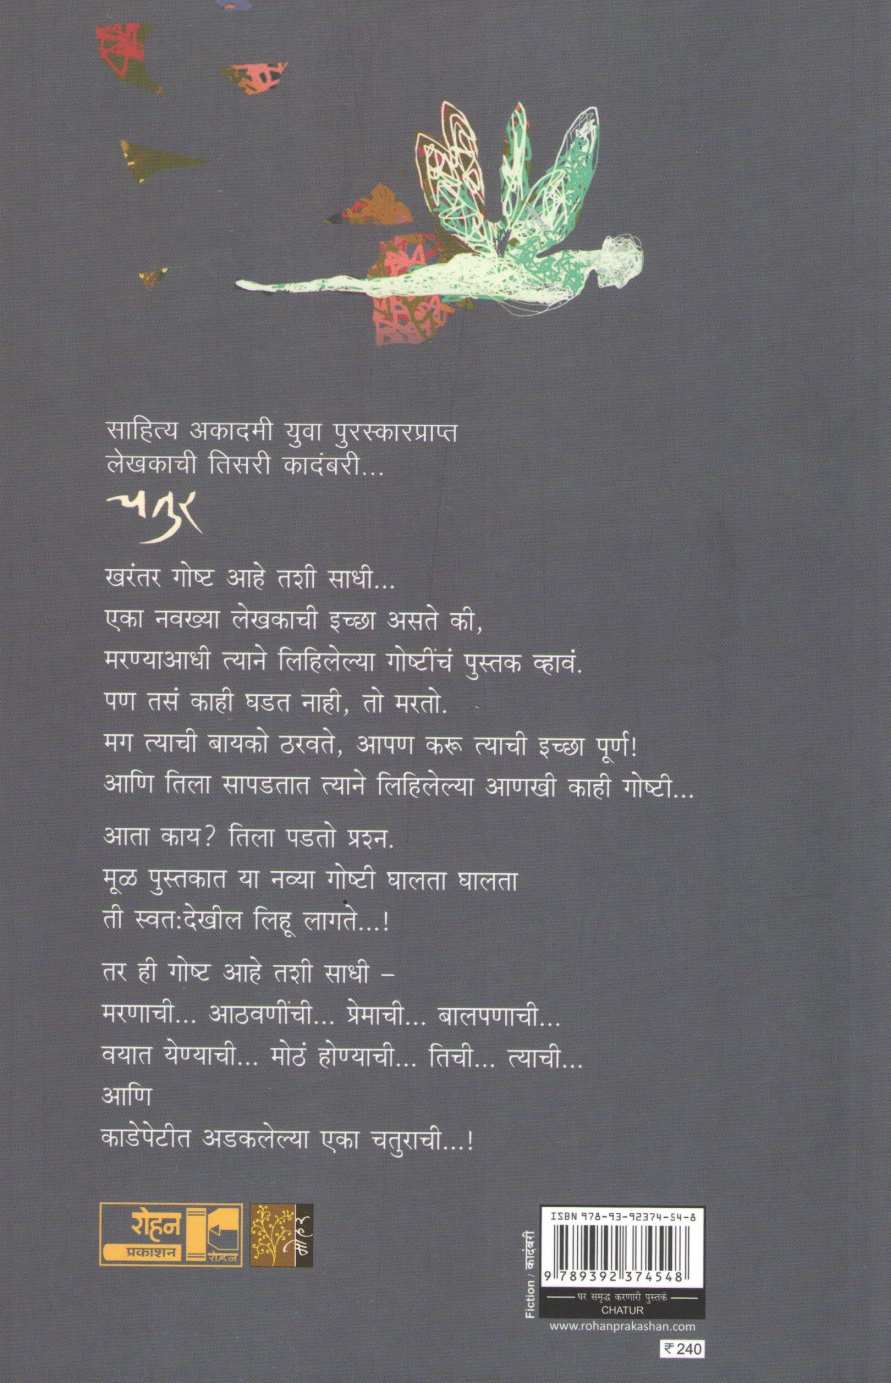 साहित्य अकादमी युवा पुरस्कारप्राप्त
लेखकाची तिसरी कादंबरी...
चतुर
खरंतर गोष्ट आहे तशी साधी...
एका नवख्या लेखकाची इच्छा असते की,
मरण्याआधी त्याने लिहिलेल्या गोष्टींचं पुस्तक व्हावं.
पण तसं काही घडत नाही, तो मरतो.
मग त्याची बायको ठरवते, आपण करू त्याची इच्छा पूर्ण!
आणि तिला सापडतात त्याने लिहिलेल्या आणखी काही गोष्टी...
आता काय? तिला पडतो प्रश्न.
मूळ पुस्तकात या नव्या गोष्टी घालता घालता
ती स्वत:देखील लिहू लागते...!
तर ही गोष्ट आहे तशी साधी –
मरणाची... आठवणींची... प्रेमाची... बालपणाची...
वयात येण्याची... मोठं होण्याची... तिची... त्याची...
आणि
काडेपेटीत अडकलेल्या एका चतुराची...!
रोहन
प्रकाशन
रोहन
मोहर
Fiction / कादंबरी
ISBN 978-93-92374-54-8
9 789392 374548
घर समृद्ध करणारी पुस्तकं
CHATUR
www.rohanprakashan.com
₹ 240